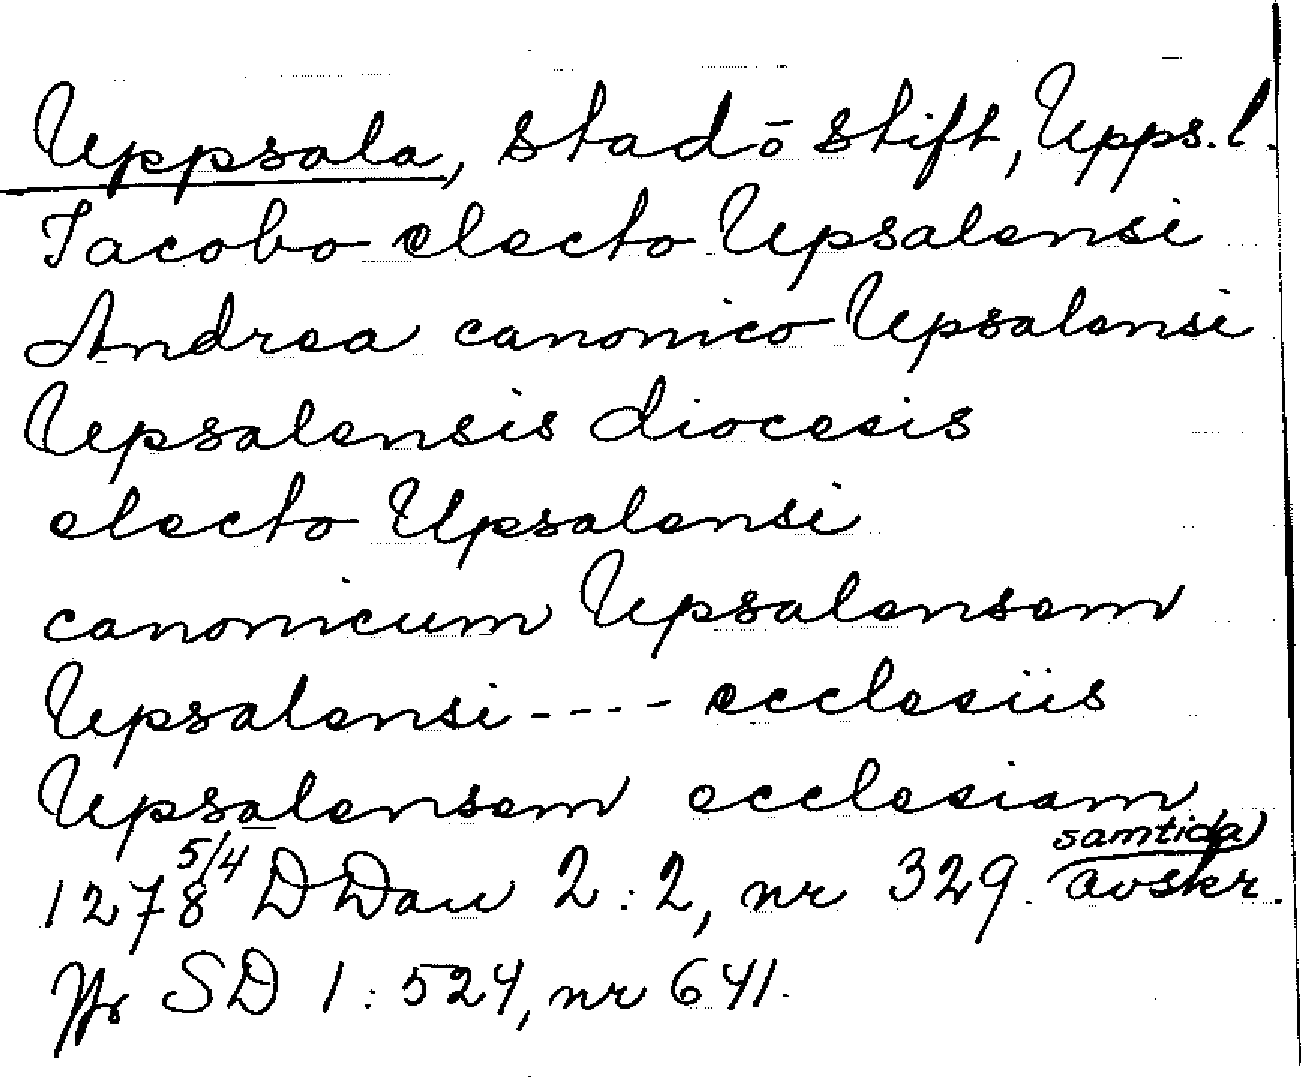 Uppsala, stad o stift, Upps.l.
Jacobo electo Upsalensi
Andrea canonico Upsalensi
Upsalensis diocesis
electo Upsalensi
canonicum Upsalensem
Upsalensi ---- ecclesiis
Upsalensem ecclesiam
1278 5/4 DDan 2:2, nr 329. samtida avskr.
Jfr SD 1:524, nr 641.